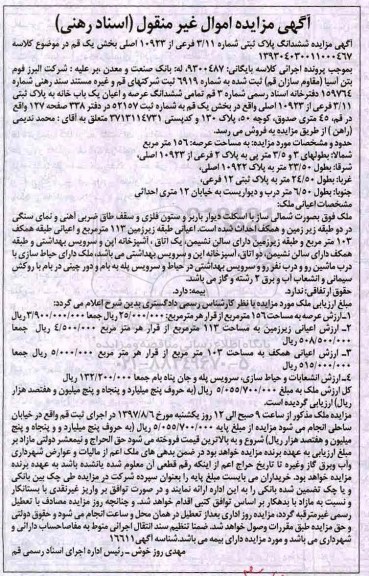 آگهی مزایده اموال غیر منقول (اسناد رهنی)
آگهی مزایده ششدانگ پلاک ثبتی شماره ۳/۱۱ فرعی از ۱۰۹۲۳ اصلی بخش یک قم در موضوع کلاسه
۱۳۹۳۰۴۰۳۰۰۱۱۰۰۰۴۶۷
بموجب پرونده اجرائی کلاسه بایگانی: ۹۳۰۰۴۸۷، له: بانک صنعت و معدن ،بر علیه : شرکت البرز فوم
بتن آسیا (مقاوم سازان قم) ثبت شده به شماره ۶۹۱۹ ثبت شرکتهای قم و غیره مستند سند رهنی شماره
۱۵۹۷۶۴ دفترخانه اسناد رسمی شماره ۳ قم تمامی ششدانگ عرصه و اعیان یک باب خانه به پلاک ثبتی
۳/۱۱ فرعی از ۱۰۹۲۳ اصلی واقع در بخش یک قم به شماره ثبت ۵۲۱۵۷ در دفتر ۳۳۸ صفحه ۱۲۷ واقع
در قم، ۴۵ متری صدوق، کوچه ۵۰، پلاک ۱۳۰ و کدپستی ۳۷۱۳۱۱۴۷۳۱ متعلق به آقای : محمد ندیمی
(راهن) از طریق مزایده به فروش می رسد.
حدود و مشخصات مورد مزایده: به مساحت عرصه: ۱۵۶ متر مربع
شمالا: بطولهای ۳ و ۳/۵ متر پی به پلاک ۲ فرعی از ۱۰۹۲۳ اصلی،
شرقا: بطول ۲۳/۵۰ متر به پلاک ۱۰۹۲۲ اصلی،
غربا: بطول ۲۴/۵۰ متر به پلاک ثبتی ۱۲ فرعی،
جنوبا: بطول ۶/۵۰ متر درب و دیواریست به خیابان ۱۲ متری احداثی
مشخصات اعیانی ملک:
ملک فوق بصورت شمالی ساز با اسکلت دیوار باربر و ستون فلزی و سقف طاق ضربی آهنی و نمای سنگی
در دو طبقه زیر زمین و همکف احداث شده است. اعیانی طبقه زیرزمین ۱۱۳ مترمربع و اعیانی طبقه همکف
۱۰۳ متر مربع و طبقه زیرزمین دارای سالن نشیمن، یک اتاق ، آشپزخانه اپن و سرویس بهداشتی و طبقه
همکف دارای سالن نشیمن، دو اتاق، آشپزخانه اپن و سرویس بهداشتی می باشد. ملک دارای حیاط سازی با
درب ماشین رو و درب نفر رو و سرویس بهداشتی در حیاط و سرویس پله به بام و دور چینی در بام با روکش
سیمانی و انشعاب آب و برق ۲ رشته و گاز می باشد.
حقوق ارتفاقی: ندارد. بیمه: دارد.
مبلغ ارزیابی ملک مورد مزایده با نظر کارشناس رسمی دادگستری بدین شرح اعلام می گردد:
۱ـ ارزش عرصه به مساحت ۱۵۶ مترمربع از قرار هر مترمربع: ۲۵/۰۰۰/۰۰۰ ریال جمعا ۳/۹۰۰/۰۰۰/۰۰۰ ریال
۲ـ ارزش اعیانی زیرزمین به مساحت ۱۱۳ مترمربع از قرار هر متر مربع ۴/۵۰۰/۰۰۰ ریال جمعا
۵۰۸/۵۰۰/۰۰۰ ریال
۳ـ ارزش اعیانی همکف به مساحت ۱۰۳ متر مربع از قرار هر متر مربع ۵/۰۰۰/۰۰۰ ریال جمعا
۵۱۵/۰۰۰/۰۰۰ ریال
۴ـ ارزش انشعابات و حیاط سازی، سرویس پله و جان پناه بام جمعا ۱۳۲/۲۰۰/۰۰۰ ریال
کل ارزش ملک به مبلغ ۵/۰۵۵/۷۰۰/۰۰۰ ریال (به حروف پنج میلیارد و پنجاه و پنج میلیون و هفتصد هزار
ریال) ارزیابی گردیده است.
مزایده ملک مذکور از ساعت ۹ صبح الی ۱۲ روز یکشنبه مورخ ۱۳۹۷/۸/۶ در اجرای ثبت قم واقع در خیابان
ساحلی انجام می شود مزایده از مبلغ پایه ۵/۰۵۵/۷۰۰/۰۰۰ ریال (به حروف پنج میلیارد و پنجاه و پنج
میلیون و هفتصد هزار ریال) شروع و به بالاترین قیمت فروخته می شود حق الحراج و نیمعشر دولتی مازاد بر
مبلغ ارزیابی به عهده برنده مزایده خواهد بود در ضمن بدهی های ملک اعم از مالیات و عوارض شهرداری
وآب وبرق گاز وغیره تا تاریخ حراج اعم از اینکه رقم قطعی آن معلوم شده یانشده باشد به عهده برنده
مزایده خواهد بود. خریداران می بایست مبلغ پایه را بعنوان سپرده شرکت در مزایده طی چک بین بانکی
و یا چک تضمین شده بانکی را به این اداره ارائه نمایند و در صورت توافق بر واریز غیرنقدی با بستانکار
و نسبت به مازاد با بدهکار بر اساس توافق کتبی اقدام خواهد شد. و چنانچه روز مزایده مصادف با تعطیل
رسمی غیرمترقبه گردد، مزایده روز اداری بعداز تعطیل در همان محل و ساعت انجام می شود و حقوق دولتی
و حق مزایده طبق مقررات وصول خواهد شد. ضمنا تنظیم سند انتقال اجرائی منوط به مفاصاحساب دارائی و
شهرداری می باشد و مورد مزایده دارای بیمه می باشد.شناسه آگهی ۱۶۶۱۱
مهدی روز خوش ـ رئیس اداره اجرای اسناد رسمی قم